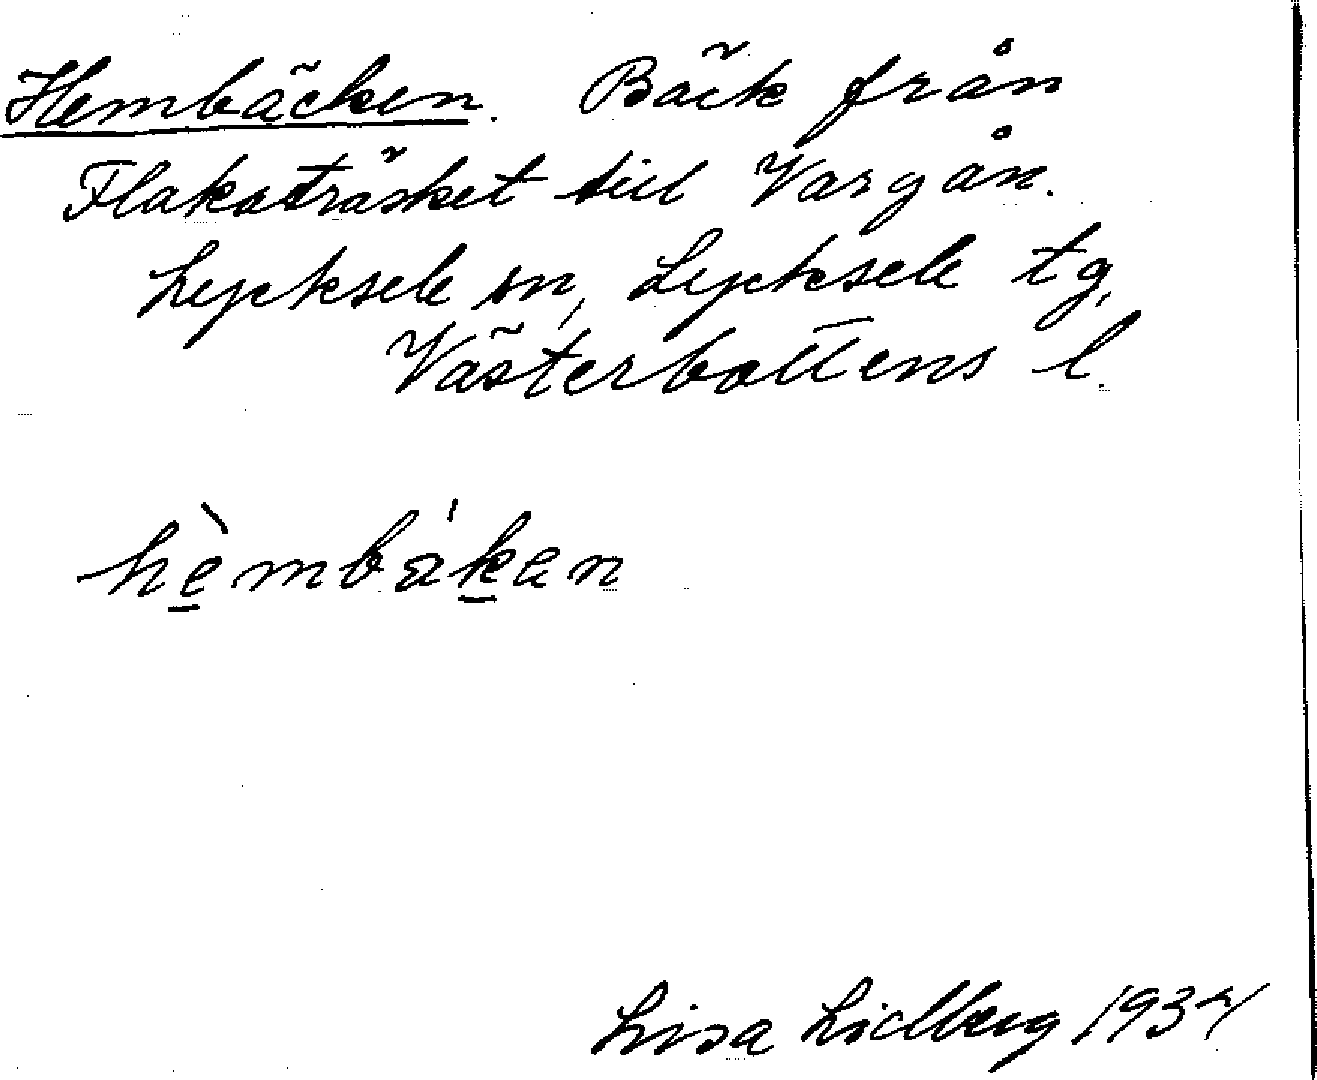 Hembäcken. Bäck från
Flakaträsket till Vargån.
Lycksele sn, Lycksele tg,
Västerbottens l.
hèmbák̲en
Lisa Lidberg 1934